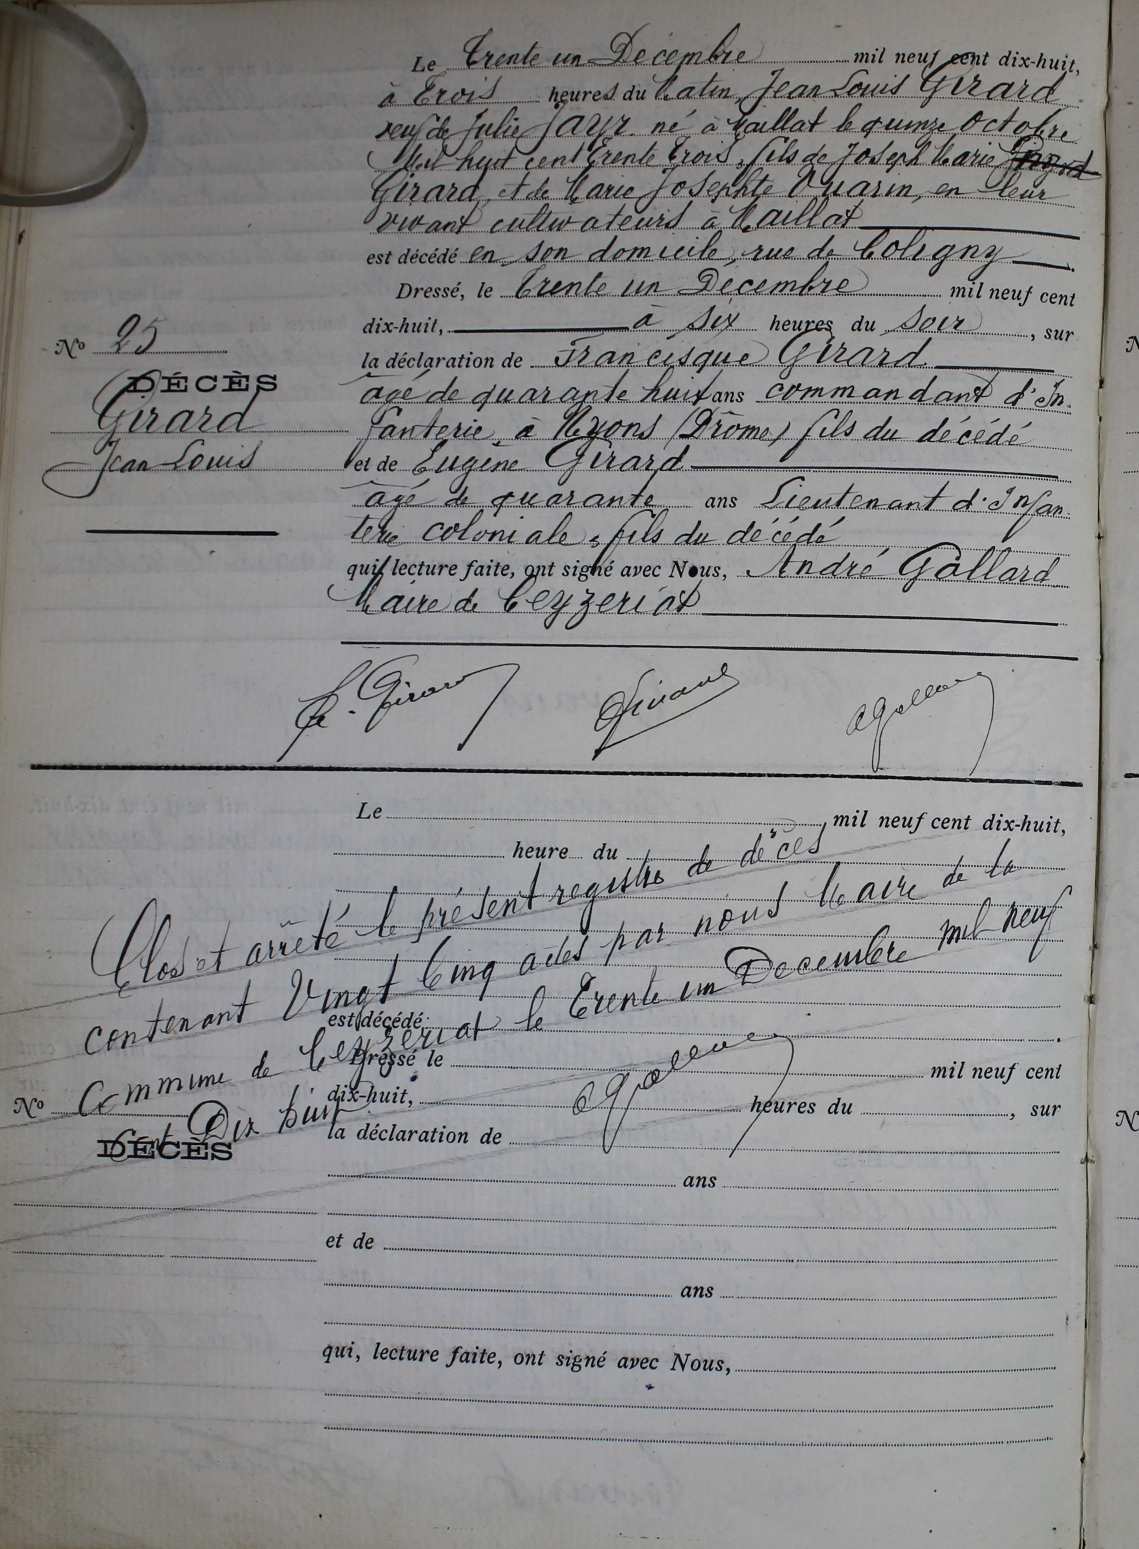 Le Trente un Décembre mil neuf cent dix-huit,
à Trois heures du Matin, Jean Louis Girard
veuf de Julie Jayr né à Maillat le quinze Octobre
Mil huit cent trente trois, fils de Joseph Marie
Girard, et de Marie Josephte Vuarin, en leur
vivant cultivateurs à Maillat
est décédé en son domicile, rue de Coligny
Dressé, le Trente un Décembre mil neuf cent
dix-huit, à six heures du soir, sur
la déclaration de Francisque Girard
âgé de quarante huit ans commandant d'In
fanterie, à Nyons (Drôme) fils du décédé
et de Eugène Girard
âgé de quarante ans Lieutenant d'Infan
terie coloniale, fils du décédé
qui, lecture faite, ont signé avec Nous, André Gallard
Maire de Ceyzériat
No 25
DÉCÈS
Girard
Jean Louis
F. Girard
Girard
A Gallard
Le mil neuf cent dix-huit,
heure du
est décédé
Dressé le mil neuf cent
dix-huit, heures du , sur
la déclaration de
ans
et de
ans
qui, lecture faite, ont signé avec Nous,
No
DÉCÈS
Clos et arrêté le présent registre de décès
contenant Vingt Cinq actes par nous Maire de la
Commune de Ceyzériat le Trente un Décembre mil neuf
Cent Dix huit
A Gallard